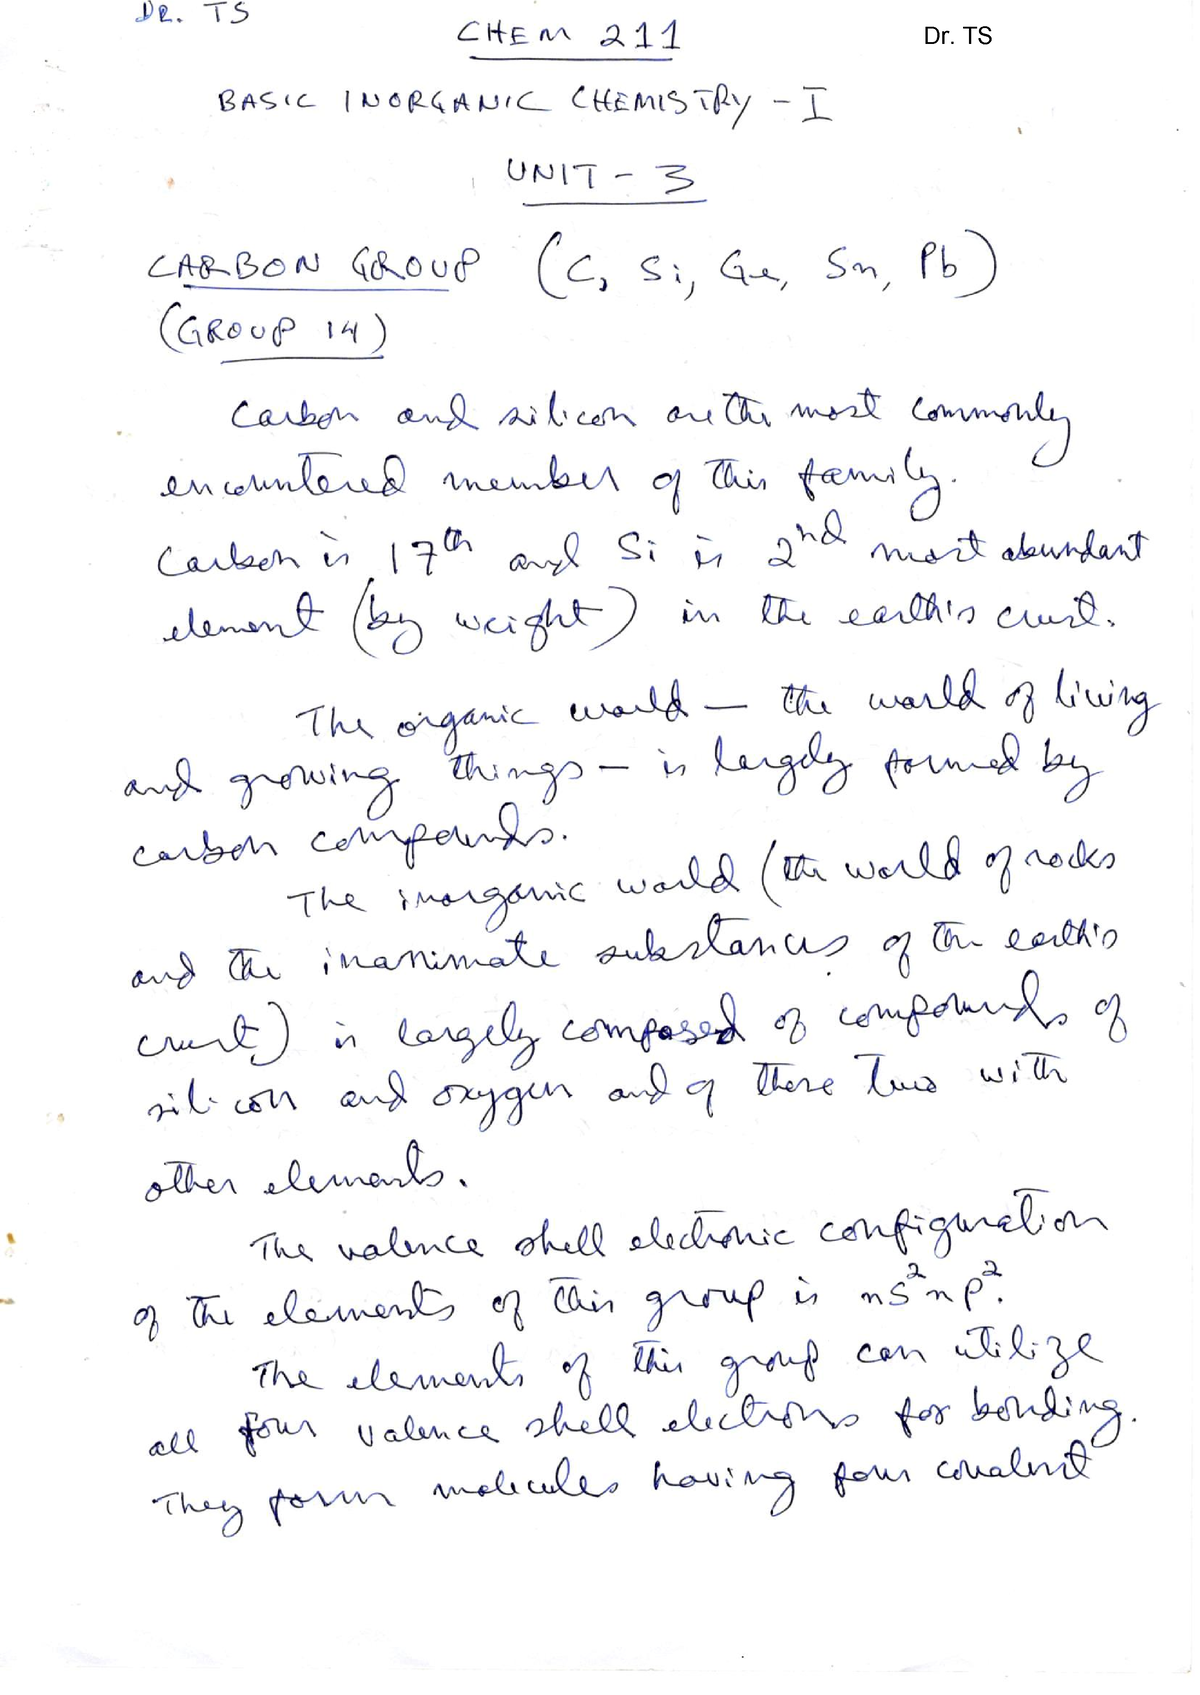 DR. TS
CHEM 211
Dr. TS
BASIC INORGANIC CHEMISTRY - I
UNIT - 3
CARBON GROUP (C, Si, Ge, Sn, Pb)
(GROUP 14)
Carbon and silicon are the most commonly
encountered member of this family.
Carbon is 17th and Si is 2nd most abundant
element (by weight) in the earth's crust.
The organic world — the world of living
and growing things — is largely formed by
carbon compounds.
The inorganic world (the world of rocks
and the inanimate substances of the earth's
crust) is largely composed of compounds of
silicon and oxygen and of these two with
other elements.
The valence shell electronic configuration
of the elements of this group is ns²np².
The elements of this group can utilize
all four valence shell electrons for bonding.
They form molecules having four covalent